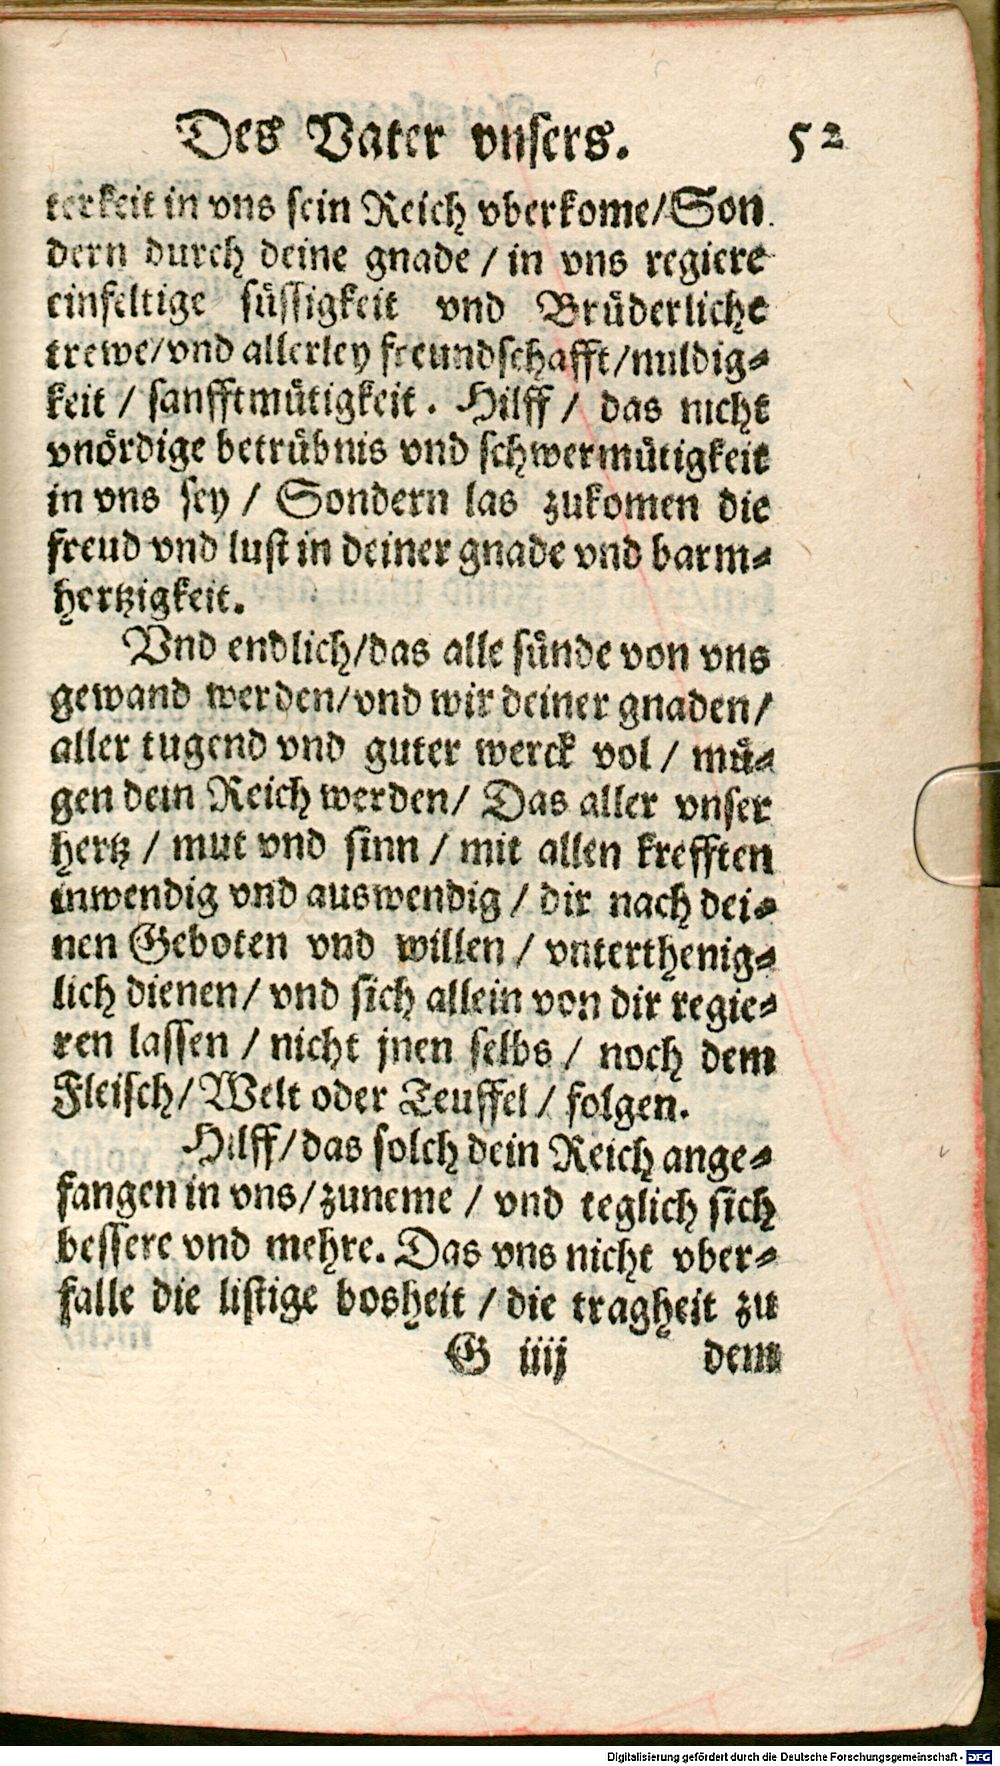 Des Vater vnsers. 52
terkeit in vns sein Reich vberkome/Son
dern durch deine gnade / in vns regiere
einfeltige süssigkeit vnd Brüderliche
trewe/vnd allerley freundschafft/mildig-
keit / sanfftmütigkeit. Hilff / das nicht
vnördige betrübnis vnd schwermütigkeit
in vns sey / Sondern las zukomen die
freud vnd lust in deiner gnade vnd barm-
hertzigkeit.
Vnd endlich/das alle sünde von vns
gewand werden/vnd wir deiner gnaden/
aller tugend vnd guter werck vol / mü-
gen dein Reich werden/ Das aller vnser
hertz / mut vnd sinn / mit allen krefften
inwendig vnd auswendig / dir nach dei-
nen Geboten vnd willen / vnterthenig-
lich dienen/ vnd sich allein von dir regie-
ren lassen / nicht jnen selbs / noch dem
Fleisch/ Welt oder Teuffel / folgen.
Hilff/das solch dein Reich ange-
fangen in vns/zuneme / vnd teglich sich
bessere vnd mehre. Das vns nicht vber-
falle die listige bosheit / die tragheit zu
G iiij dem
Digitalisierung gefördert durch die Deutsche Forschungsgemeinschaft - DFG